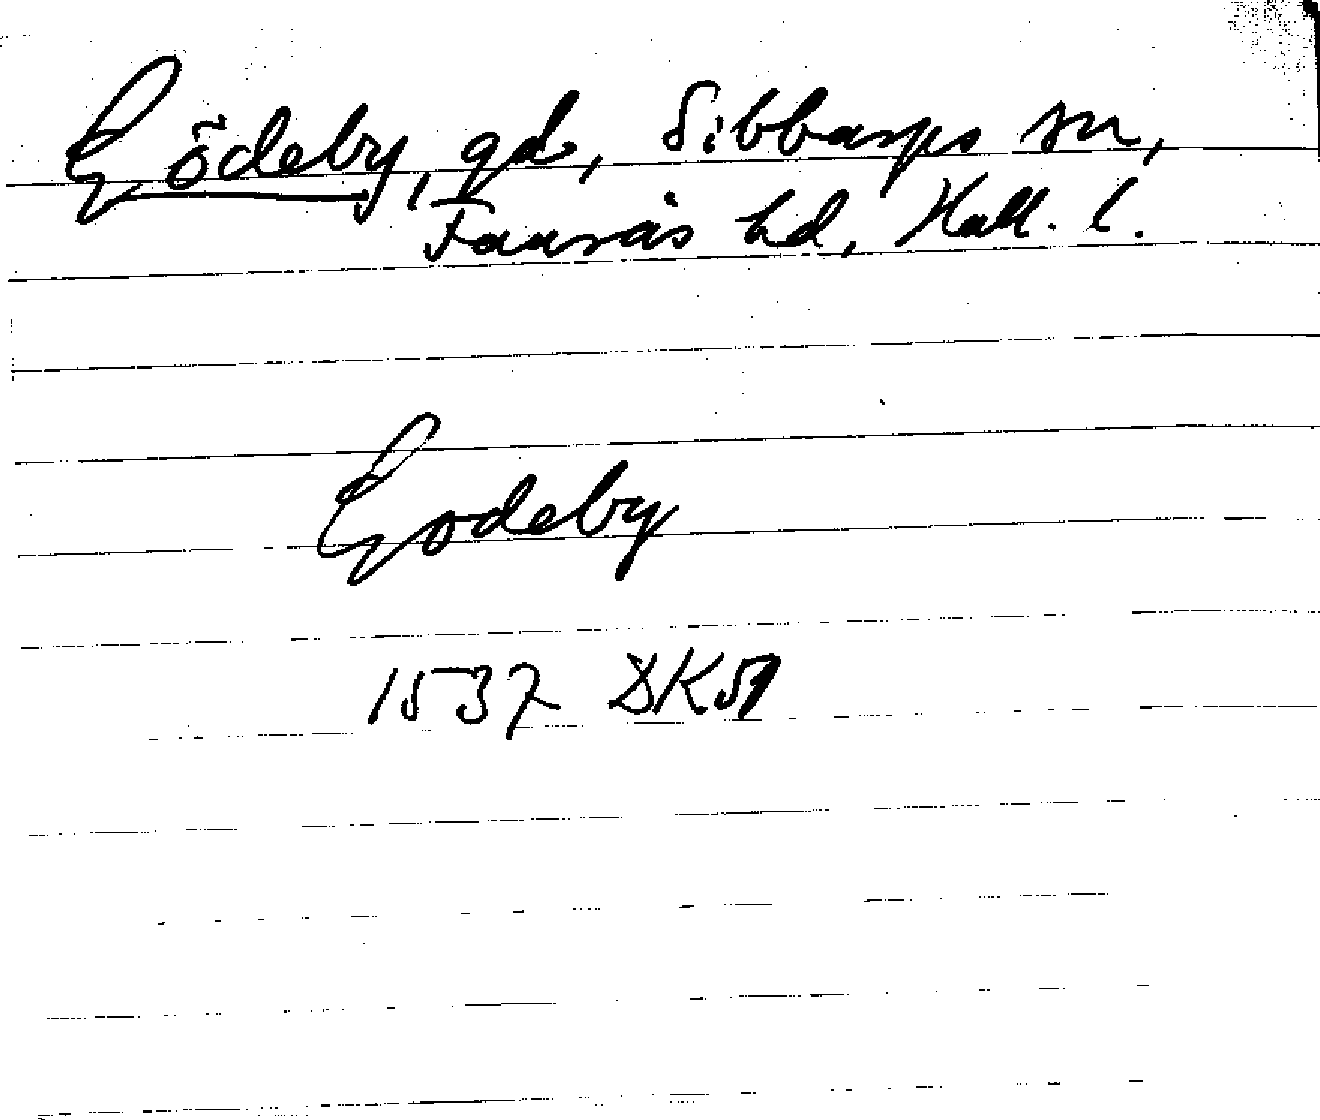 Gödeby, gd, Sibbarps sn,
Faurås hd, Hall. l.
Godeby
1537 DK